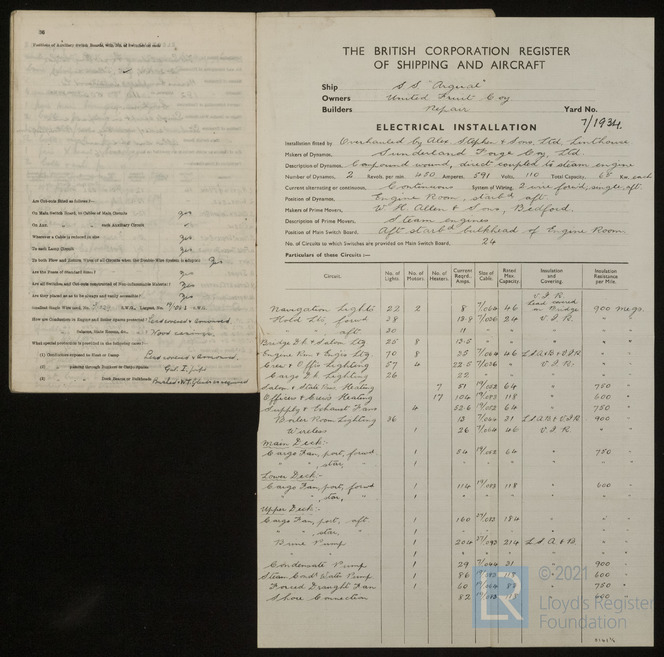 36
Positions of Auxiliary Switch Boards, with No. of Switches on each
Are Cut-outs fitted as follows:—
On Main Switch Board, to Cables of Main Circuits yes
On Aux. " " each Auxiliary Circuit
Wherever a Cable is reduced in size yes
To each Lamp Circuit yes
To both Flow and Return Wires of all Circuits when the Double Wire System is adopted yes
Are the Fuses of Standard Sizes? yes
Are all Switches and Cut-outs constructed of Non-inflammable Material? yes
Are they placed so as to be always and easily accessible? yes
Smallest Single Wire used, No. S.W.G., Largest, No. S.W.G.
How are Conductors in Engine and Boiler Spaces protected? Lead covered & armoured
Saloons, State Rooms, &c., Wood casing
What special protection is provided in the following cases?—
(1) Conductors exposed to Heat or Damp Lead covered & armoured
(2) " passing through Bunkers or Cargo Spaces Gal. I. pipe
(3) " " Deck Beams or Bulkheads Bushes & W.T. Glands as required
THE BRITISH CORPORATION REGISTER
OF SHIPPING AND AIRCRAFT
Ship S.S. "Argual"
Owners United Fruit Coy
Builders Repair Yard No.
7/1934.
ELECTRICAL INSTALLATION
Installation fitted by Overhauled by Alex Stephen & Sons, Ltd, Linthouse
Makers of Dynamos, Sunderland Forge Coy, Ltd.
Description of Dynamos, Compound wound, direct coupled to steam engine
Number of Dynamos, 2 Revols. per min. 450 Amperes, 591 Volts, 110 Total Capacity, 65 Kw. each
Current alternating or continuous, Continuous System of Wiring, 2 wire forw'd, single, aft.
Position of Dynamos, Engine Room, starb'd aft.
Makers of Prime Movers, W. H. Allen & Sons, Bedford.
Description of Prime Movers, Steam engines
Position of Main Switch Board, Aft starb'd bulkhead of Engine Room.
No. of Circuits to which Switches are provided on Main Switch Board, 24
Particulars of these Circuits :—
Circuit. No. of Lights. No. of Motors. No. of Heaters. Current Reqrd. Amps. Size of Cable. Rated Max. Capacity. Insulation and Covering. Insulation Resistance per Mile.
V.I.R. Lead covered on Bridge
Navigation Lights 22 2 8 7/064 46 900 megs.
Hold Lts, forwd 38 13.9 7/036 24 V.I.R. " "
" " aft. 30 11 " " " " "
Bridge Dk & Saloon Ltg 25 8 13.5 " " " " "
Engine Rm & Engrs Ltg 70 8 35 7/064 46 L.S.A.B. & V.I.R. " "
Crew & Offrs Lighting 57 4 22.5 7/036 " V.I.R. " "
Cargo Dk Lighting 26 22 " " " " "
Saloon & State Rms Heating 7 51 19/052 64 " 750 "
Officers & Crew's Heating 17 104 19/083 118 " 600 "
Supply & Exhaust Fans 4 52.6 19/052 64 " 750 "
Boiler Room Lighting 36 13 7/044 31 L.S.A.B. & V.I.R. 900 "
Wireless 1 26 7/064 46 V.I.R. " "
Main Deck:-
Cargo Fan, port, forwd 1 54 19/052 64 " 750 "
" " , star, " 1 " " " " " "
Lower Deck:-
Cargo Fan, port, forwd 1 114 19/083 118 " 600 "
" " , star, " 1 " " " " " "
Upper Deck:-
Cargo Fan, port, aft. 1 160 37/083 184 " " "
" " , star, " 1 " " " " " "
Brine Pump 1 204 37/093 214 L.S.A. & B. " "
" " 1 " " " " " "
Condensate Pump 1 29 7/044 31 " 900 "
Steam Cond'r Water Pump 1 86 600 "
Forced Draught Fan 1 60 750 "
Shore Connection 82 600 "
© 2021
Lloyd's Register
Foundation
LR